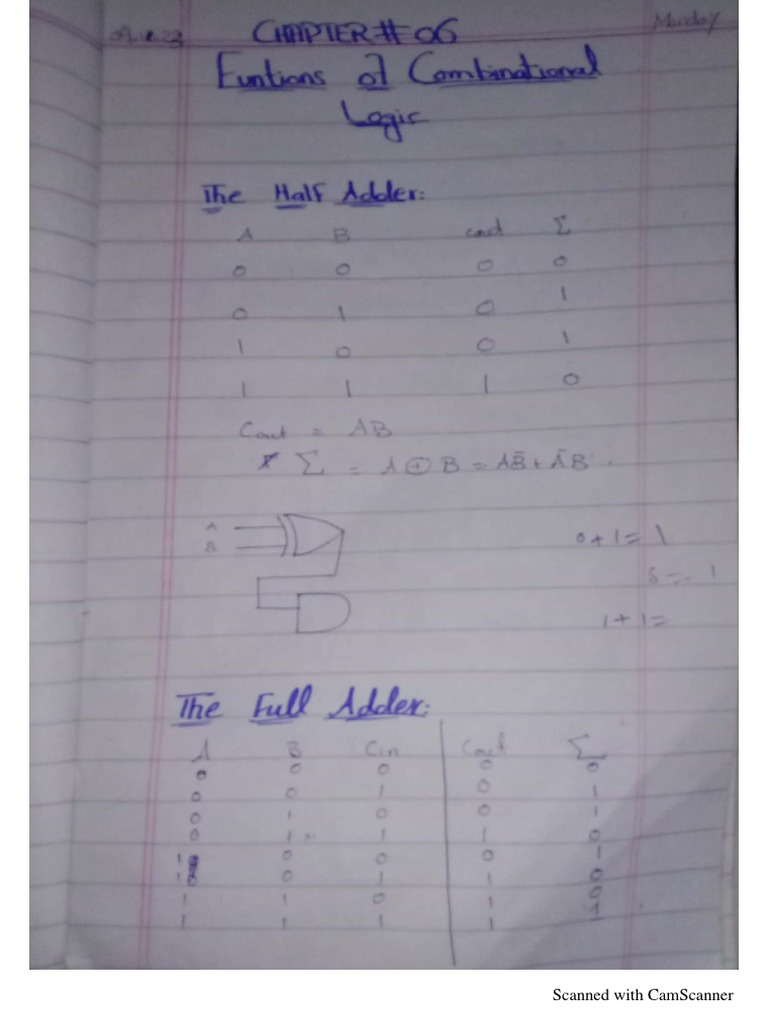 Monday
CHAPTER # 06
Funtions of Combinational
Logic
The Half Adder:
A B Cout Σ
0 0 0 0
0 1 0 1
1 0 0 1
1 1 1 0
Cout = AB
* Σ = A ⊕ B = AB̄ + ĀB
A
B
0 + 1 = 1
S = 1
1 + 1 =
The Full Adder:
A B Cin Cout Σ
0 0 0 0 0
0 0 1 0 1
0 1 0 0 1
0 1 1 1 0
1 0 0 0 1
1 0 1 1 0
1 1 0 1 0
1 1 1 1 1
Scanned with CamScanner